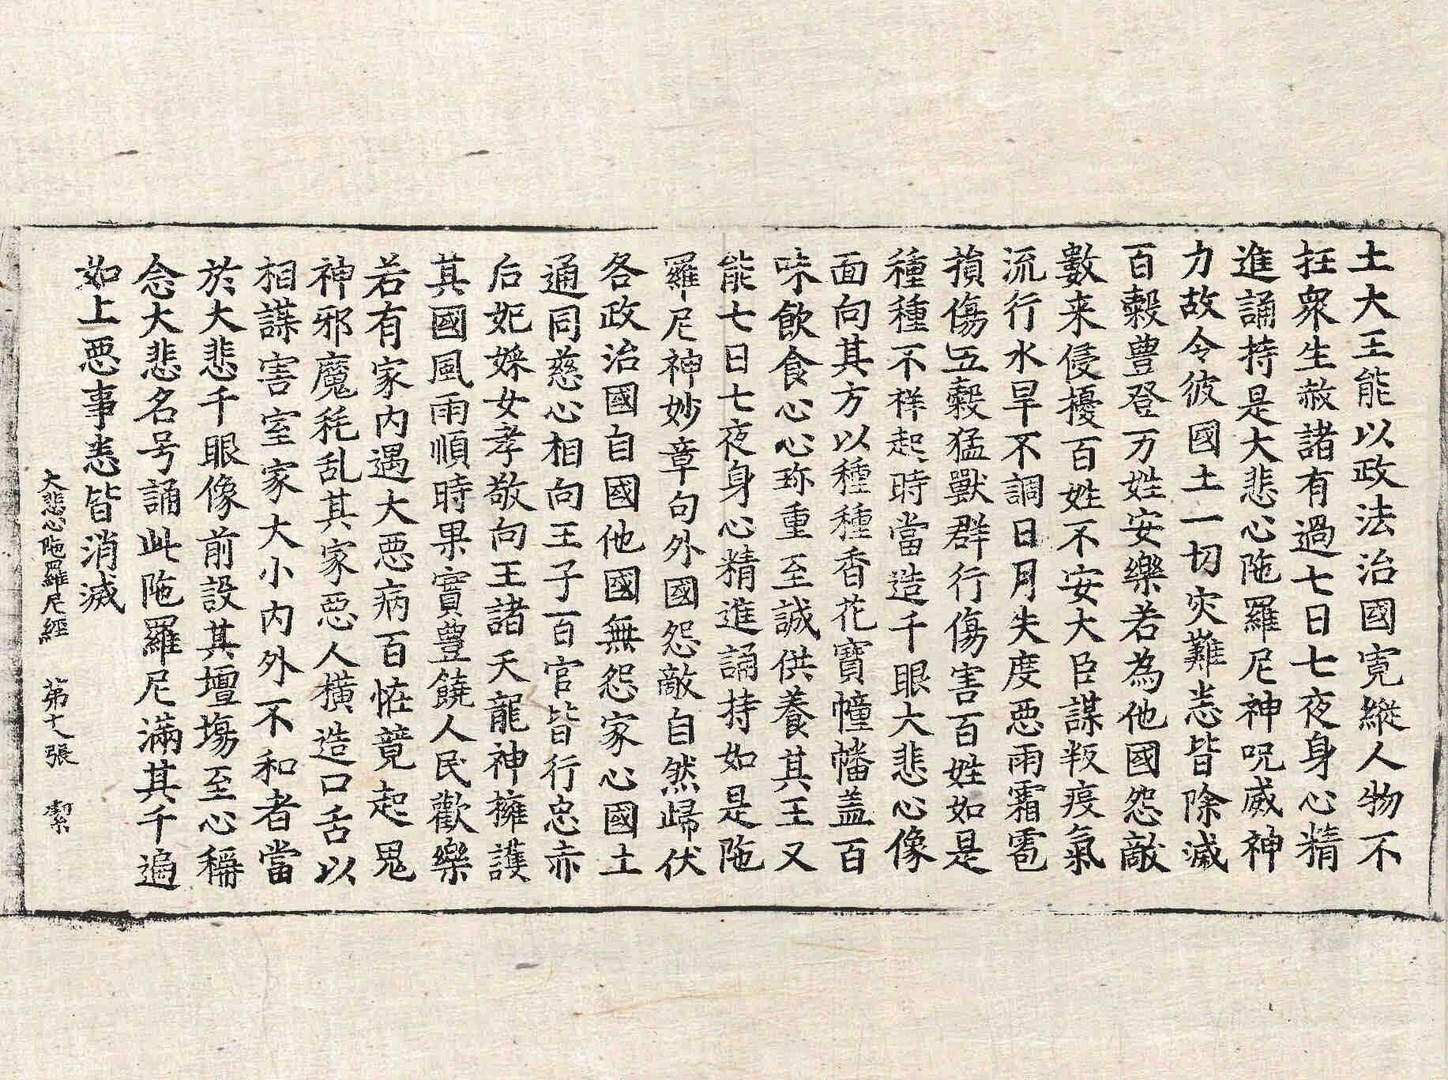 土大王能以政法治國寛縱人物不
抂衆生赦諸有過七日七夜身心精
進誦持是大悲心陁羅尼神呪威神
力故令彼國土一切灾難悉皆除滅
百穀豊登万姓安樂若為他國怨敵
數来侵擾百姓不安大臣謀叛疫氣
流行水旱不調日月失度恶雨霜雹
損傷五穀猛獸群行傷害百姓如是
種種不祥起時當造千眼大悲心像
面向其方以種種香花寶幢幡盖百
味飲食心心珎重至誠供養其王又
能七日七夜身心精進誦持如是陁
羅尼神妙章句外國怨敵自然歸伏
各政治國自國他國無怨家心國土
通同慈心相向王子百官皆行忠赤
后妃婇女孝敬向王諸天龍神擁護
其國風雨順時果實豊饒人民歡樂
若有家内遇大恶病百怪竟起鬼
神邪魔耗乱其家恶人横造口舌以
相謀害室家大小内外不和者當
於大悲千眼像前設其壇塲至心稱
念大悲名号誦此陁羅尼滿其千遍
如上恶事悉皆消滅
大悲心陁羅尼經 第十八張 潔